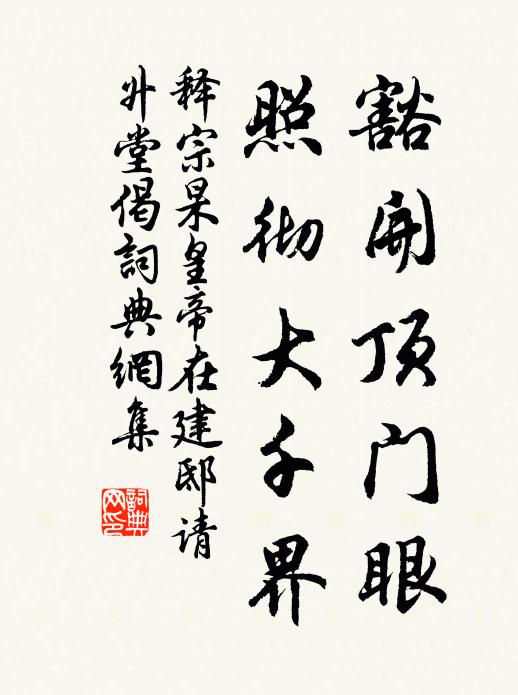 豁開顶门眼
照彻大千界
释宗杲皇帝在建邸请
升堂偈詞典網集
詞典网印